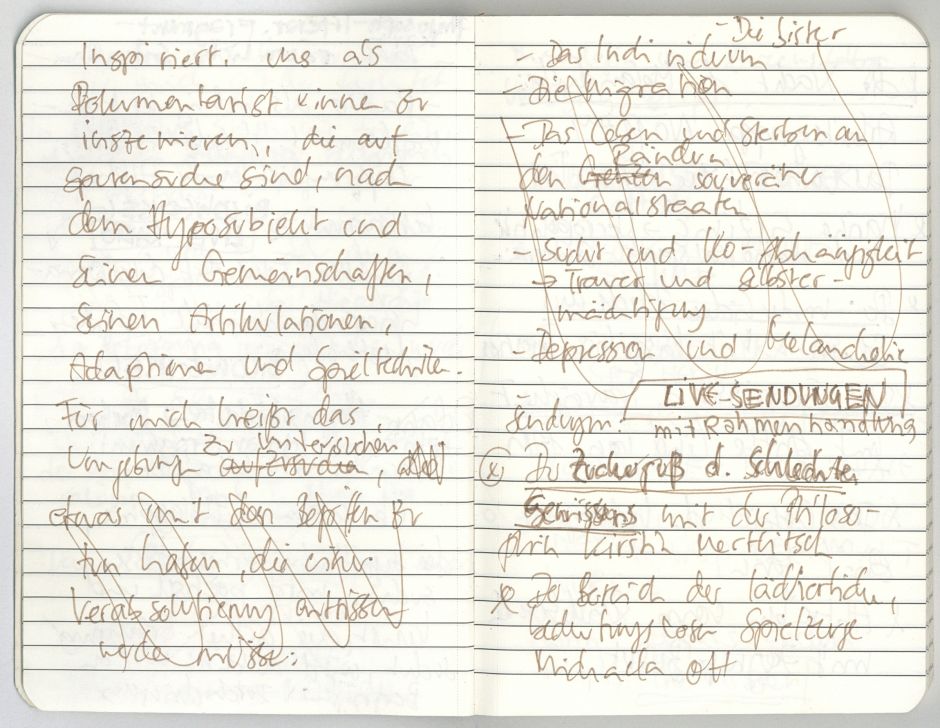 Inspiriert, uns als
Dokumentarist*innen zu
inszenieren, die auf
Spurensuche sind, nach
dem Hyposubjekt und
seinen Gemeinschaften,
seinen Artikulationen,
Adaptionen und Spieltechniken.
Für mich heißt das,
Umgebungen zu untersuchen aufzusuchen,
etwas mit den Begriffen zu
tun haben, die einer
Verabsolutierung entrissen
werden müssen.
- Die Sister
- Das Individuum
- Die Migration
- Das Leben und Sterben an
den Grenzen Rändern souveräner
Nationalstaaten
- Sucht und Ko-Abhängigkeit
→ Trauer und Selbster-
mächtigung
- Depression und Melancholie
LIVE-SENDUNGEN
Sendungen: mit Rahmenhandlung
Der Zuckerguß d. Schlechten
Gewissens mit der Philoso-
phin Kirstin
Der Bereich der lächerlichen,
bedeutungslosen Spielzeuge
Michaela Ott